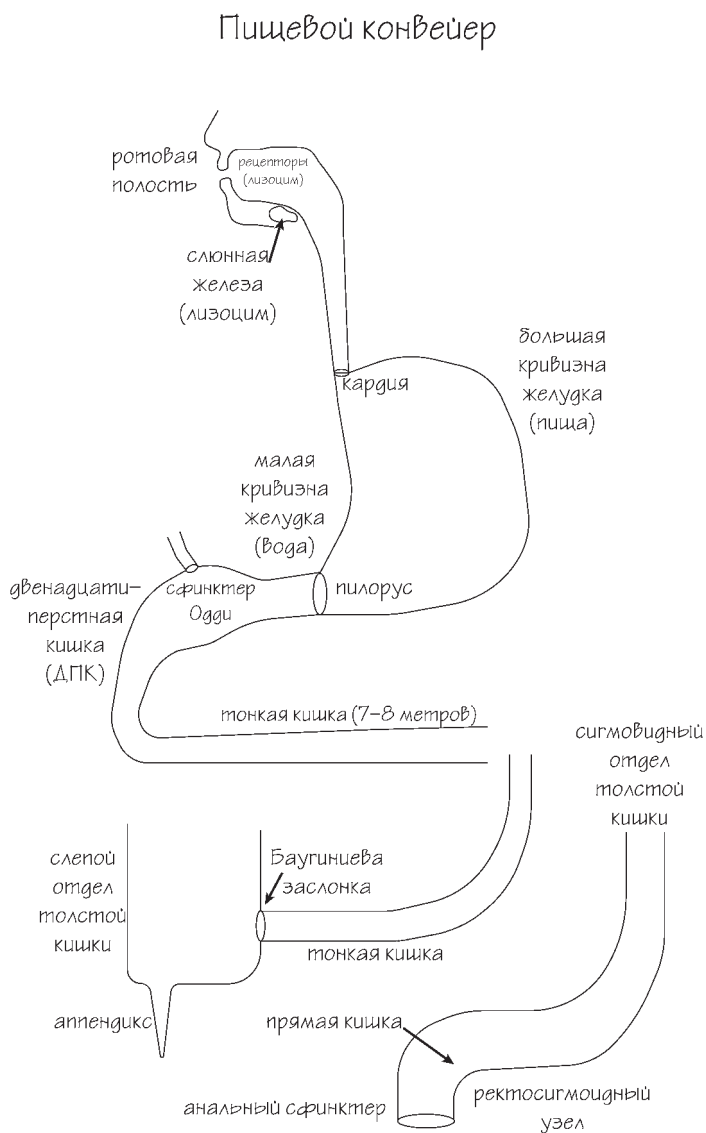 Пищевой конвейер
ротовая
полость
рецепторы
(лизоцим)
слюнная
железа
(лизоцим)
большая
кривизна
желудка
(пища)
кардия
малая
кривизна
желудка
(вода)
двенадцати-
перстная
кишка
(ДПК)
сфинктер
Одди
пилорус
тонкая кишка (7–8 метров)
сигмовидный
отдел
толстой
кишки
слепой
отдел
толстой
кишки
Баугиниева
заслонка
тонкая кишка
аппендикс
прямая кишка
анальный сфинктер
ректосигмоидный
узел